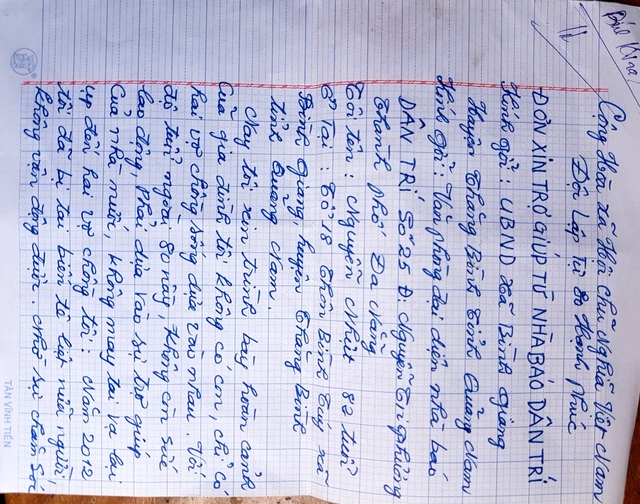 Cộng Hòa xã Hội chủ Nghĩa Việt Nam
Độc Lập Tự do Hạnh Phúc
ĐƠN XIN TRỢ GIÚP TỪ NHÀ BÁO DÂN TRÍ
Kính gửi: UBND xã Bình Giang
Huyện Thăng Bình Tỉnh Quảng Nam
Kính gửi: Văn phòng đại diện nhà báo
DÂN TRÍ Số 25 Đ. Nguyễn Tri phương
Thành phố Đà Nẵng
Tôi tên: Nguyễn Nhứt 82 tuổi
Ở Tại: Tổ 18 thôn Bình Túy xã
Bình Giang, huyện Thăng Bình
tỉnh Quảng Nam.
Nay tôi xin trình bày hoàn cảnh
Của gia đình tôi không có con, chỉ có
hai vợ chồng sống dựa vào nhau. Với
độ tuổi ngoài 80 này, không còn sức
lao động, phải dựa vào sự trợ giúp
Của nhà nước, không may tai vạ lại
ập đến hai vợ chồng tôi: Năm 2012
tôi đã bị tai biến tê liệt nửa người
không vận động được. Nhờ sự chăm sóc
TÂN VĨNH TIẾN